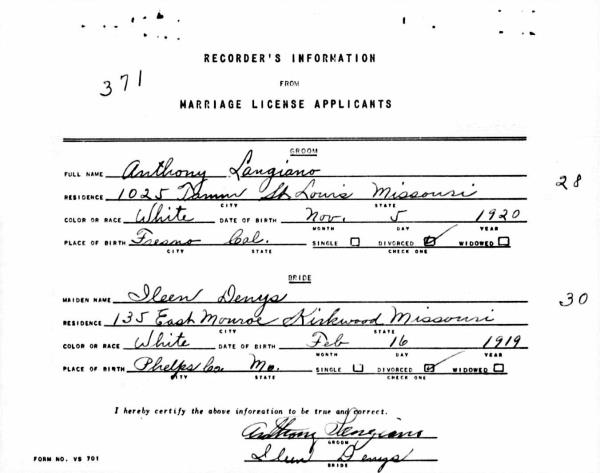 RECORDER'S INFORMATION
371
FROM
MARRIAGE LICENSE APPLICANTS
GROOM
FULL NAME Anthony Langiano
28
RESIDENCE 1025 Tamm St Louis Missouri
CITY STATE
COLOR OR RACE White DATE OF BIRTH Nov. 5 1920
MONTH DAY YEAR
PLACE OF BIRTH Fresno Cal. SINGLE ☐ DIVORCED ☑ WIDOWED ☐
CITY STATE CHECK ONE
BRIDE
MAIDEN NAME Ileen Denys
30
RESIDENCE 135 East Monroe Kirkwood Missouri
CITY STATE
COLOR OR RACE White DATE OF BIRTH Feb 16 1919
MONTH DAY YEAR
PLACE OF BIRTH Phelps Co. Mo. SINGLE ☐ DIVORCED ☑ WIDOWED ☐
CITY STATE CHECK ONE
I hereby certify the above information to be true and correct.
Anthony
GROOM
Ileen Denys
FORM NO. VS 701
BRIDE